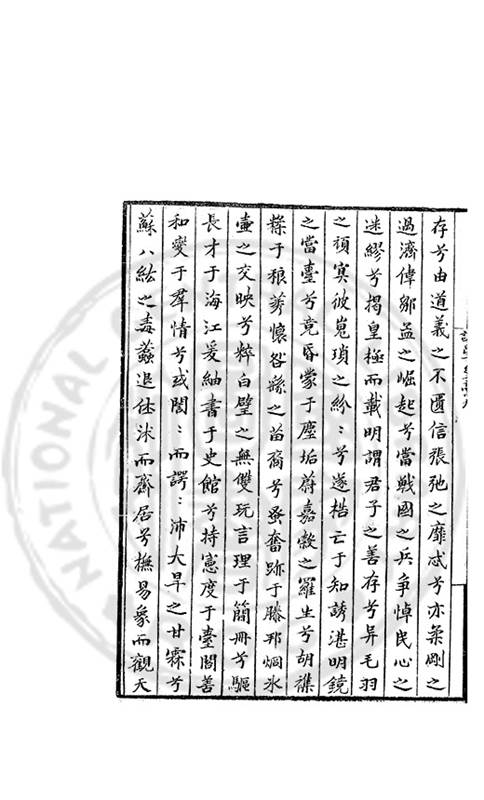 存兮由道義之不匱信張弛之靡忒兮亦柔剛之
過濟偉鄒孟之崛起兮當戰國之兵爭悼民心之
迷繆兮揭皇極而載明謂君子之善存兮异毛羽
之頑冥彼嵬瑣之紛〻兮遂梏亡于知誘湛明鏡
之當臺兮竟昏蒙于塵垢蔚嘉穀之羅生兮胡襍
糅于稂莠懷咎繇之苗裔兮蚤奮跡于勝邦烱氷
壷之交映兮粹白璧之無雙玩言理于簡冊兮驅
長才于海江爰紬書于史館兮持憲度于臺閣善
和變于羣情兮或誾〻而諤〻沛大旱之甘霖兮
蘇八紘之毒蠚退仕沭而齋居兮撫易象而觀天
NATIONAL